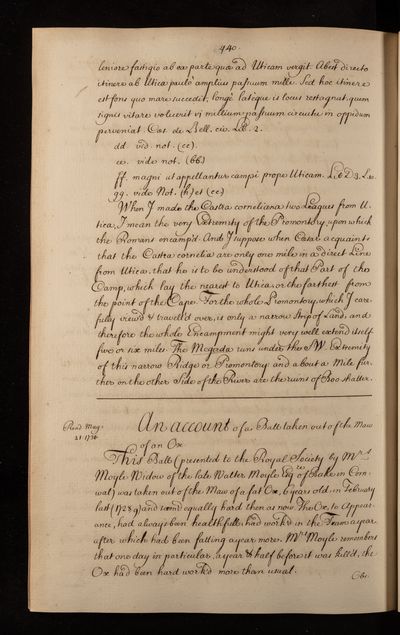 440.
leniore fastigio ab ea parte quæ ad Uticam vergit. Abest directo
itinere ab Utica paulo amplius passuum mille. Sed hoc itinere
est fons quo mare succedit; longè lateque is locus restagnat; quem
siquis vitare voluerit vi millium passuum circuitu in oppidum
perveniat. Cæs. de Bell. civ. Lib. 2.
dd vid. not. (cc).
ee. vide not. (bb)
ff. magni ut appellantur campi prope Uticam.
gg. vide Not. (h) et (ee)
When I made the Castra corneliana two Leagues from U-
tica, I mean the very Extremity of the Promontory, upon which
the Romans encamp'd. And I suppose when Cæsar acquaints
that the Castra cornelia are only one mile in a direct Line
from Utica, that he is to be understood of that Part of the
Camp, which lay the nearest to Utica, or the farthest from
the point of the Cape. For the whole Promontory, which I care-
fully view'd & travell'd over, is only a narrow Strip of Land, and
therefore the whole Encampment might very well extend itself
five or six miles. The Megerda runs under the SW Extremity
of this narrow Ridge or Promontory; and about a Mile fur-
ther on the other Side of the River are the ruins of Boo-shatter.
Read May.
21. 1730
An account of a Ball taken out of the Maw
of an Ox
This Ball (presented to the Royal Society by Mrs
Moyle Widow of the late Walter Moyle Esq of Bake in Corn-
wal) was taken out of the Maw of a fat Ox, 6 years old, in February
last (1728/9) and seem'd equally hard then as now. The Ox, to Appear-
ance, had always been healthfull; had work'd in the Team a year
after which had been fatting a year more. Mrs Moyle remembers
that one day in particular, a year & half before it was kill'd, the
Ox had been hard work'd more than usual.
Obs.